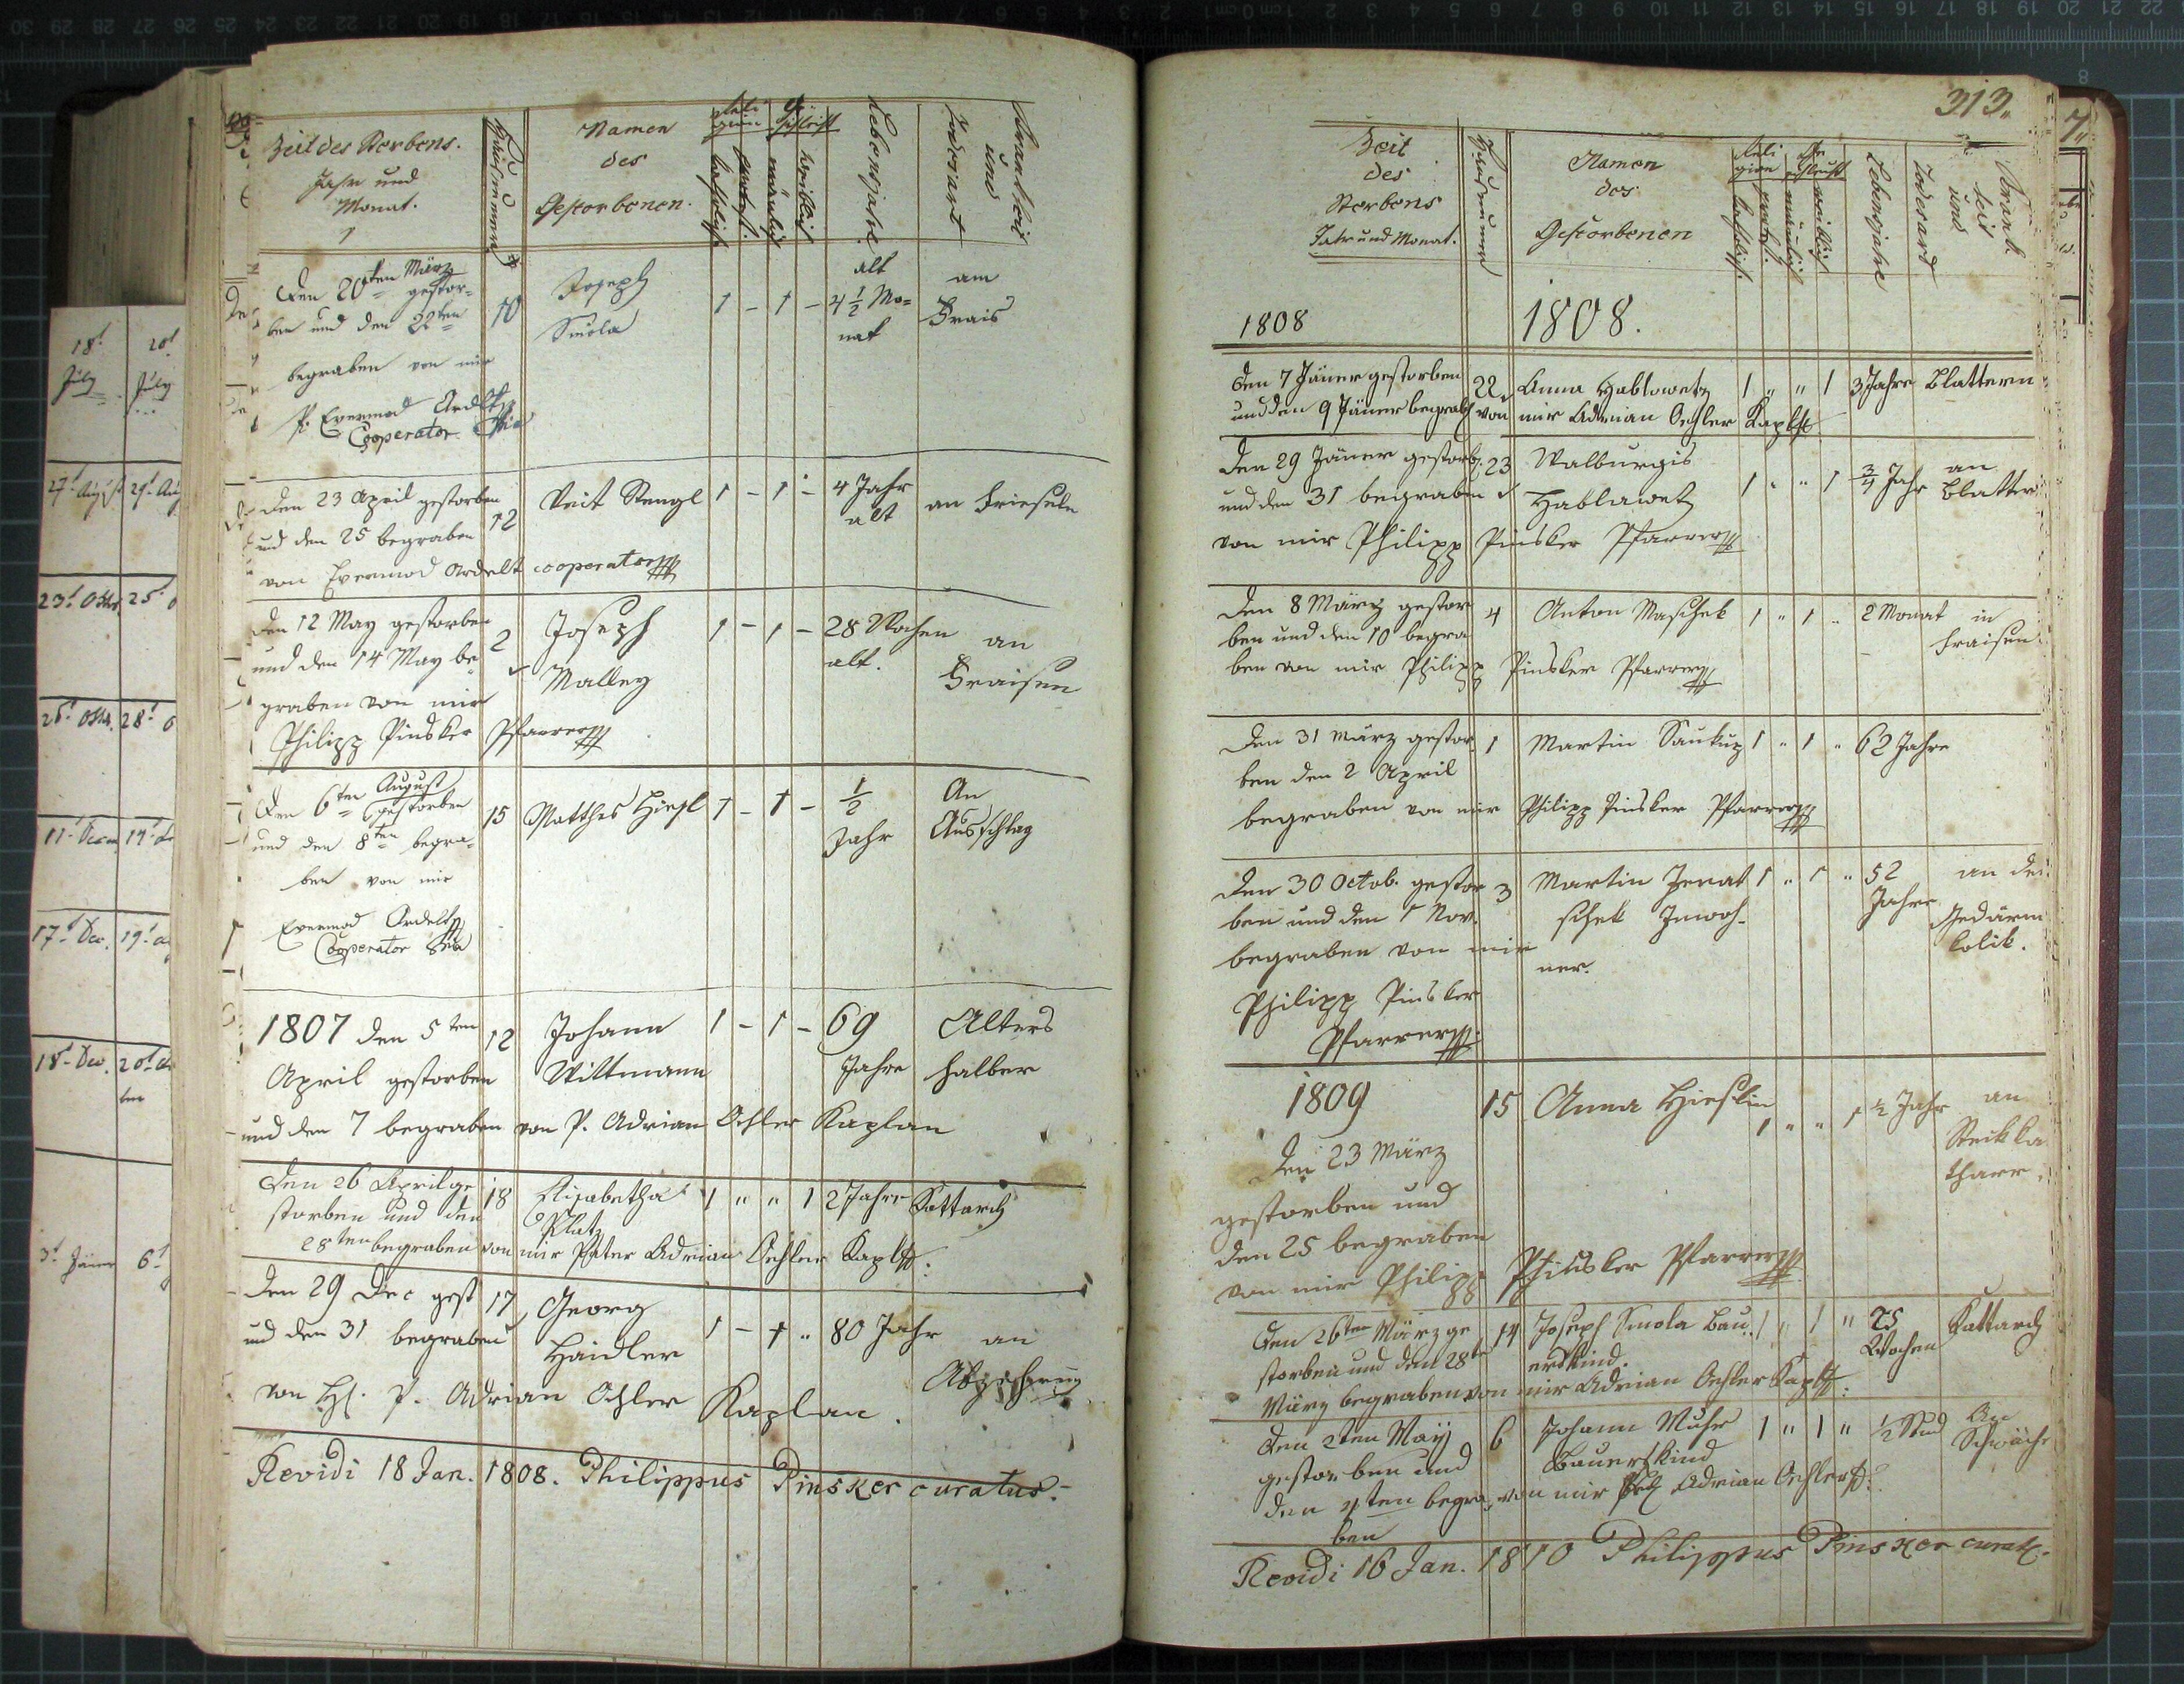 Zeit des Sterbens.
Jahr und
Monat.
Namen
des
Gestorbenen.
Reli
gion
Geschlecht
katholisch
protest.
männlich
weiblich
Lebensjahre
Krankheit
und
Todesart
Den 20ten März gestor=
ben und den 22ten
begraben von mir
P. Evermod Ardelt
Cooperator
10
Joseph
Smola
1 - 1 -
alt
4 1/2 Mo=
nat
am
Frais
Den 23 April gestorben
und den 25 begraben
von Evermod Ardelt cooperator
12
Veit Stengl
1 - 1 -
4 Jahr
alt
an Frieseln
Den 12 May gestorben
und den 14 May be
graben von mir
Philipp Pinsker Pfarrer
2
Joseph
Malley
1 - 1 -
28 Wochen
alt.
an
Fraisen
Den 6ten August gestorben
und den 8ten begra=
ben von mir
Evermod Ardelt
Cooperator
15
Matthes Hiesl
1 - 1 -
1/2
Jahr
An
Ausschlag
1807 den 5ten
April gestorben
und den 7 begraben von P. Adrian Oehler Kaplan
12
Johann
Wittmann
1 - 1 -
69
Jahre
Alters
halber
Den 26 April ge
storben und den
28ten begraben von mir Pater Adrian Oehler Kapl.
18
Elisabetha
Platz
1 " " 1
2 Jahre
Kattarh
Den 29 Dec gest
und den 31 begraben
von H. P. Adrian Oehler Kaplan.
17
Georg
Haidler
1 - 1 "
80 Jahr
an
Abzehrung
Revidi 18 Jan. 1808. Philippus Pinsker curatus.
18t
July
20t
July
27t Augst
29t Aug
23t Oktbr
25t O
28t O
17t Dec.
19t
18t Dec.
20t
3t Jäner
6t
313.
Zeit
des
Sterbens
Jahr und Monat.
Hausnumer
Namen
des
Gestorbenen
Reli
gion
Ge
schlecht
katholisch
protest.
männlich
weiblich
Lebensjahre
Krank
heit
und
Todesard
1808
1808.
Den 7 Jäner gestorben
und den 9 Jäner begrab von mir Adrian Oehler Kapl
22
Anna Hablowetz
1 " " 1
3 Jahre
Blattern
Den 29 Jäner gestorb.
und den 31 begraben
von mir Philipp Pinsker Pfarrer
23
Walburgis
Hablawetz
1 " " 1
3/4 Jahr
an
Blatter
Den 8 März gestor
ben und den 10 begra
ben von mir Philipp Pinsker Pfarrer
4
Anton Maschek
1 " 1 "
2 Monat
in
Fraisen
Den 31 März gestor
ben den 2 April
begraben von mir Philipp Pinsker Pfarrer
1
Martin Saukup
1 " 1 "
62 Jahre
Den 30 Octob. gestor
ben und den 1 Nov.
begraben von mir
Philipp Pinsker
Pfarrer
3
Martin Jerat
schek Inwoh-
ner.
1 " 1 "
52
Jahre
an der
Gedärm
kolik.
1809
Den 23 März
gestorben und
den 25 begraben
von mir Philipp Phinsker Pfarrer
15
Anna Hieslin
1 " " 1
1/2 Jahr
an
Steckka
tharr.
Den 26ten März ge
storben und den 28te
März begraben von mir Adrian Oehler Kapl
14
Joseph Smola Bau
erskind.
1 " 1 "
25
Wochen
Kattarh
Den 2ten May
gestorben und
den 4ten begra von mir Adrian Oehler
ben
6
Johann Muhr
Bauerskind
1 " 1 "
1/2 Stund
An
Schwäche
Revidi 16 Jan. 1810 Philippus Pinsker curat.